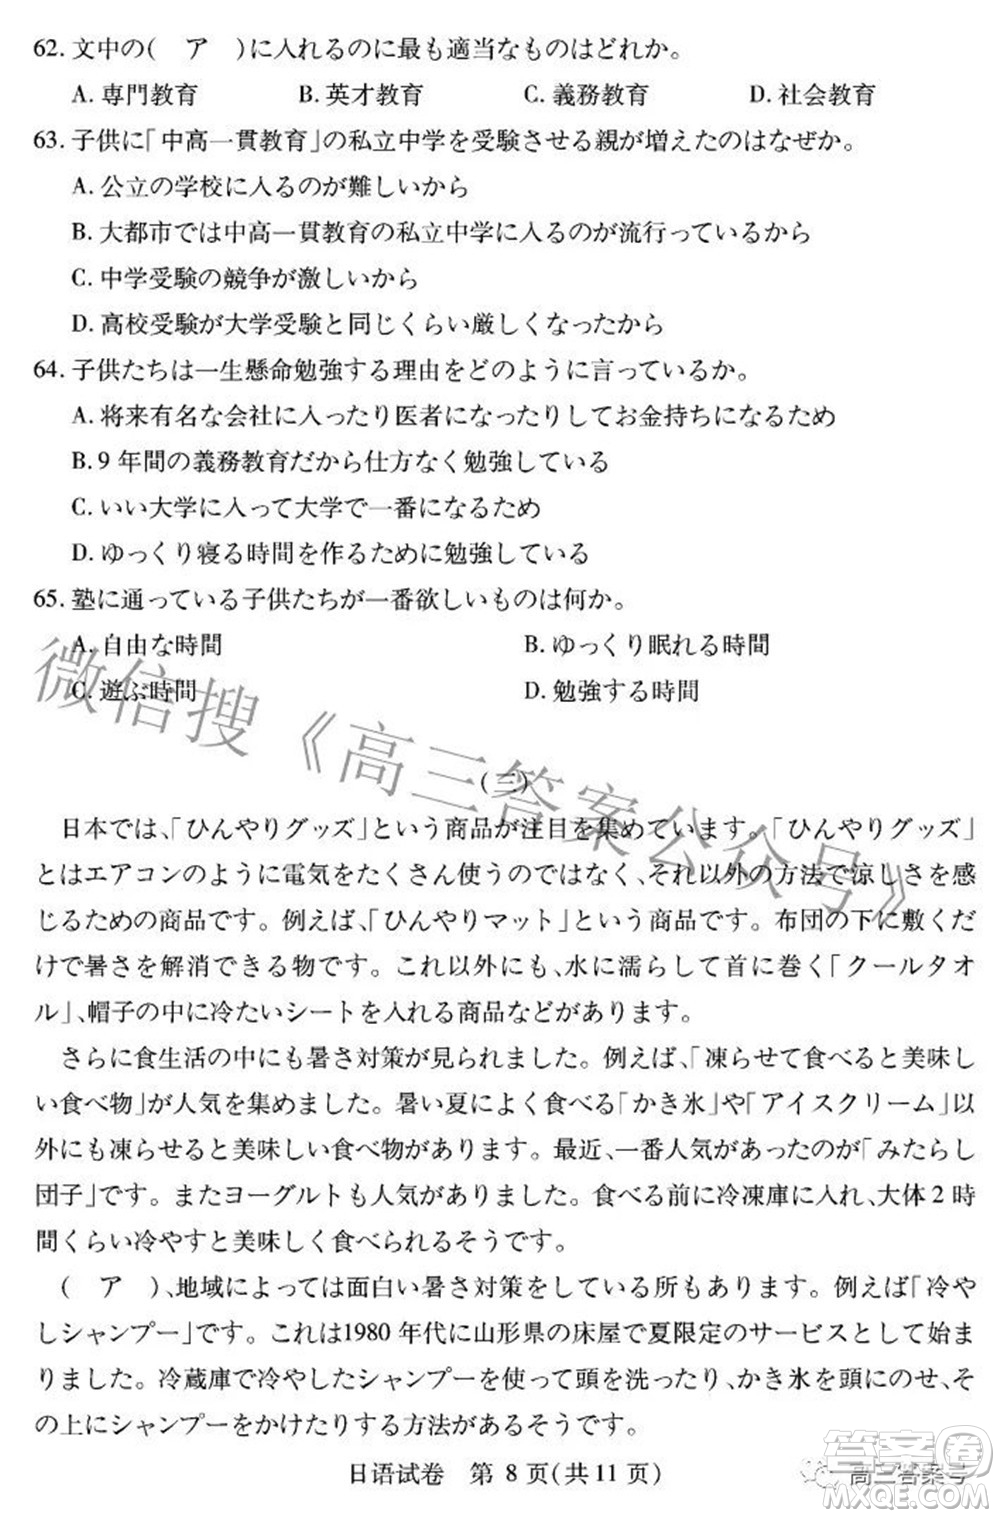 62. 文中の(　ア　)に入れるのに最も適当なものはどれか。
A. 専門教育　B. 英才教育　C. 義務教育　D. 社会教育
63. 子供に「中高一貫教育」の私立中学を受験させる親が増えたのはなぜか。
A. 公立の学校に入るのが難しいから
B. 大都市では中高一貫教育の私立中学に入るのが流行っているから
C. 中学受験の競争が激しいから
D. 高校受験が大学受験と同じくらい厳しくなったから
64. 子供たちは一生懸命勉強する理由をどのように言っているか。
A. 将来有名な会社に入ったり医者になったりしてお金持ちになるため
B. 9 年間の義務教育だから仕方なく勉強している
C. いい大学に入って大学で一番になるため
D. ゆっくり寝る時間を作るために勉強している
65. 塾に通っている子供たちが一番欲しいものは何か。
A. 自由な時間　B. ゆっくり眠れる時間
C. 遊ぶ時間　D. 勉強する時間
微信搜《高三答案公众号》
(三)
日本では、「ひんやりグッズ」という商品が注目を集めています。「ひんやりグッズ」
とはエアコンのように電気をたくさん使うのではなく、それ以外の方法で涼しさを感
じるための商品です。例えば、「ひんやりマット」という商品です。布団の下に敷くだ
けで暑さを解消できる物です。これ以外にも、水に濡らして首に巻く「クールタオ
ル」、帽子の中に冷たいシートを入れる商品などがあります。
さらに食生活の中にも暑さ対策が見られました。例えば、「凍らせて食べると美味し
い食べ物」が人気を集めました。暑い夏によく食べる「かき氷」や「アイスクリーム」以
外にも凍らせると美味しい食べ物があります。最近、一番人気があったのが「みたらし
団子」です。またヨーグルトも人気がありました。食べる前に冷凍庫に入れ、大体 2 時
間くらい冷やすと美味しく食べられるそうです。
(　ア　)、地域によっては面白い暑さ対策をしている所もあります。例えば「冷や
しシャンプー」です。これは1980 年代に山形県の床屋で夏限定のサービスとして始ま
りました。冷蔵庫で冷やしたシャンプーを使って頭を洗ったり、かき氷を頭にのせ、そ
の上にシャンプーをかけたりする方法があるそうです。
日语试卷　第 8 页(共 11 页)
高三答案号
答案圈
MXQE.COM